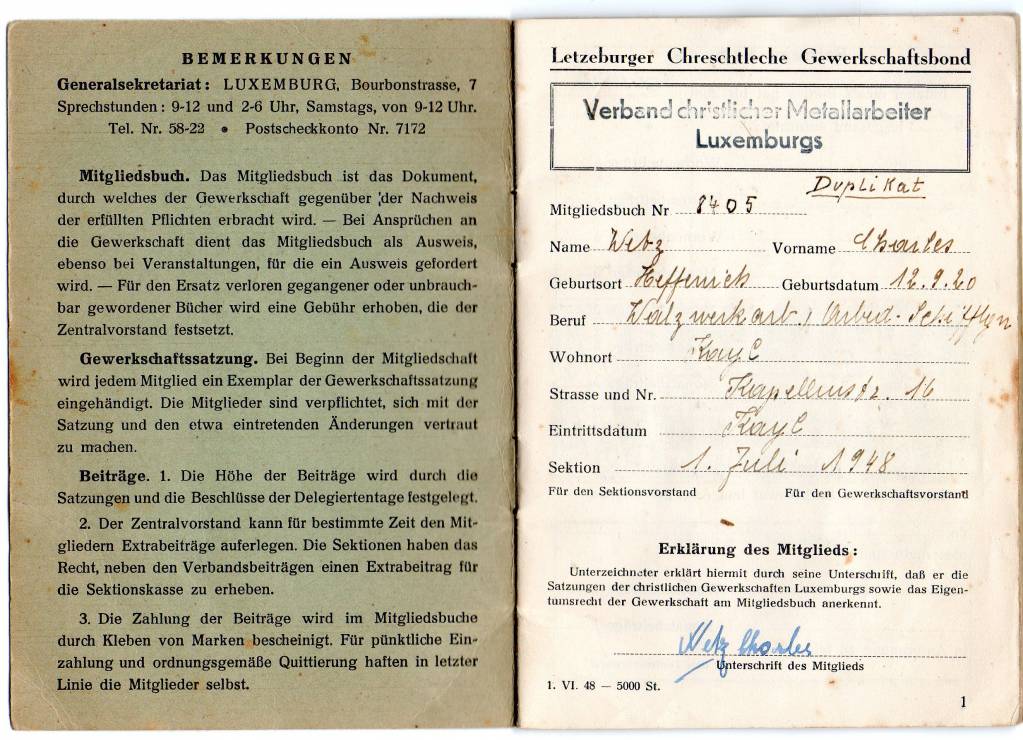 BEMERKUNGEN
Generalsekretariat: LUXEMBURG, Bourbonstrasse, 7
Sprechstunden: 9-12 und 2-6 Uhr, Samstags, von 9-12 Uhr.
Tel. Nr. 58-22 • Postscheckkonto Nr. 7172
Mitgliedsbuch. Das Mitgliedsbuch ist das Dokument,
durch welches der Gewerkschaft gegenüber der Nachweis
der erfüllten Pflichten erbracht wird. — Bei Ansprüchen an
die Gewerkschaft dient das Mitgliedsbuch als Ausweis,
ebenso bei Veranstaltungen, für die ein Ausweis gefordert
wird. — Für den Ersatz verloren gegangener oder unbrauch-
bar gewordener Bücher wird eine Gebühr erhoben, die der
Zentralvorstand festsetzt.
Gewerkschaftssatzung. Bei Beginn der Mitgliedschaft
wird jedem Mitglied ein Exemplar der Gewerkschaftssatzung
eingehändigt. Die Mitglieder sind verpflichtet, sich mit der
Satzung und den etwa eintretenden Änderungen vertraut
zu machen.
Beiträge. 1. Die Höhe der Beiträge wird durch die
Satzungen und die Beschlüsse der Delegiertentage festgelegt.
2. Der Zentralvorstand kann für bestimmte Zeit den Mit-
gliedern Extrabeiträge auferlegen. Die Sektionen haben das
Recht, neben den Verbandsbeiträgen einen Extrabeitrag für
die Sektionskasse zu erheben.
3. Die Zahlung der Beiträge wird im Mitgliedsbuche
durch Kleben von Marken bescheinigt. Für pünktliche Ein-
zahlung und ordnungsgemäße Quittierung haften in letzter
Linie die Mitglieder selbst.
Letzeburger Chreschtleche Gewerkschaftsbond
Verband christlicher Metallarbeiter
Luxemburgs
Duplikat
Mitgliedsbuch Nr 8405
Name Vorname Charles
Geburtsort Geburtsdatum 12.9.20
Beruf Walzwerkarb. Arbed-Schifflgn
Wohnort Kayl
Strasse und Nr. Kapellenstr. 16
Eintrittsdatum Kayl
Sektion 1. Juli 1948
Für den Sektionsvorstand Für den Gewerkschaftsvorstand
Erklärung des Mitglieds:
Unterzeichneter erklärt hiermit durch seine Unterschrift, daß er die
Satzungen der christlichen Gewerkschaften Luxemburgs sowie das Eigen-
tumsrecht der Gewerkschaft am Mitgliedsbuch anerkennt.
Charles
Unterschrift des Mitglieds
1. VI. 48 — 5000 St.
1